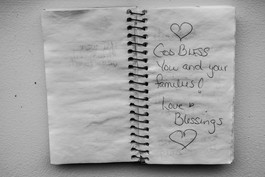 God BLESS
You and your
families!
Love &
Blessings